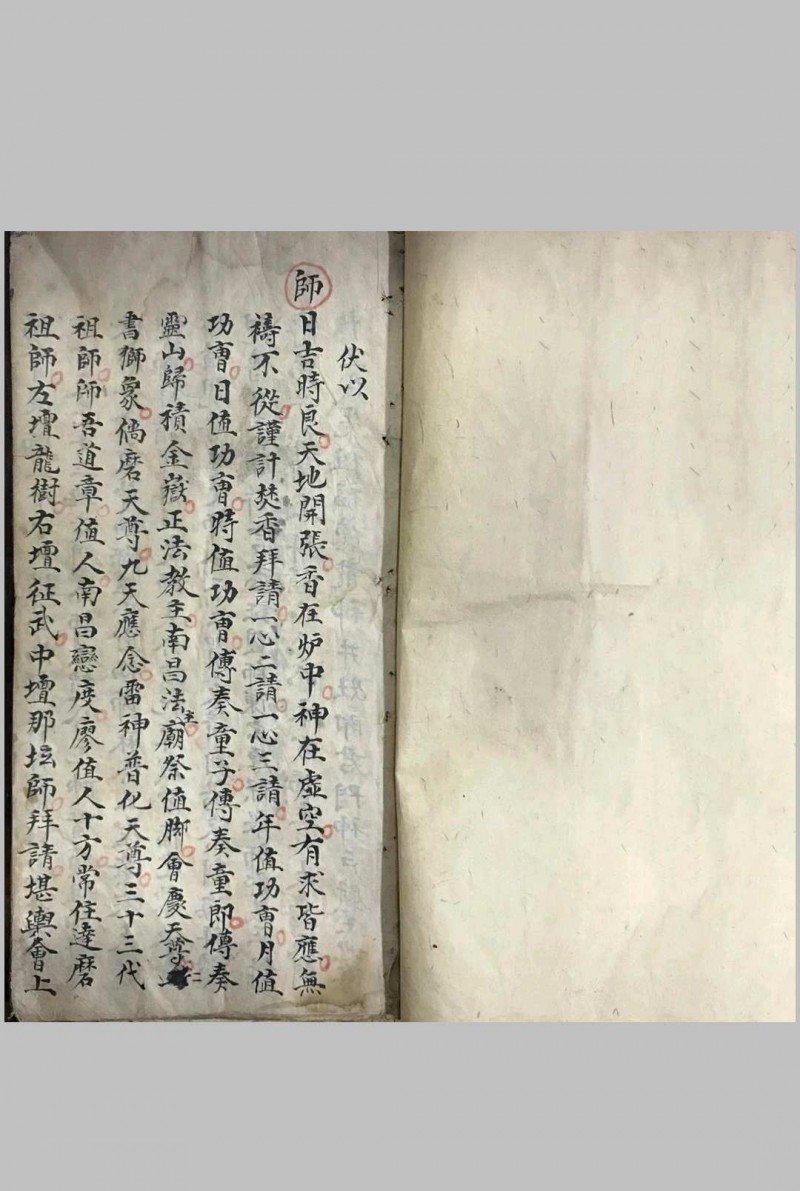 伏以
師日吉時良天地開張香在炉中神在虛空有求皆應無
禱不從謹計焚香拜請一心二請一心三請年值功曺月值
功曺日值功曺時值功曺傳奏童子傳奏童郎傳奏
靈山歸積金嶽正法教主南昌法主廟祭值脚會慶天尊二
書獅象倘磨天尊九天應念雷神普化天尊三十三代
祖師師吾道章值人南昌戀度廖值人十方常住達磨
祖師左壇龍樹右壇征武中壇那坛師拜請堪輿會上